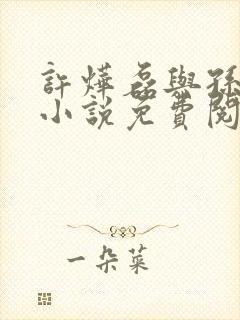 許燁磊與孫
小說免費閱
一朵菜